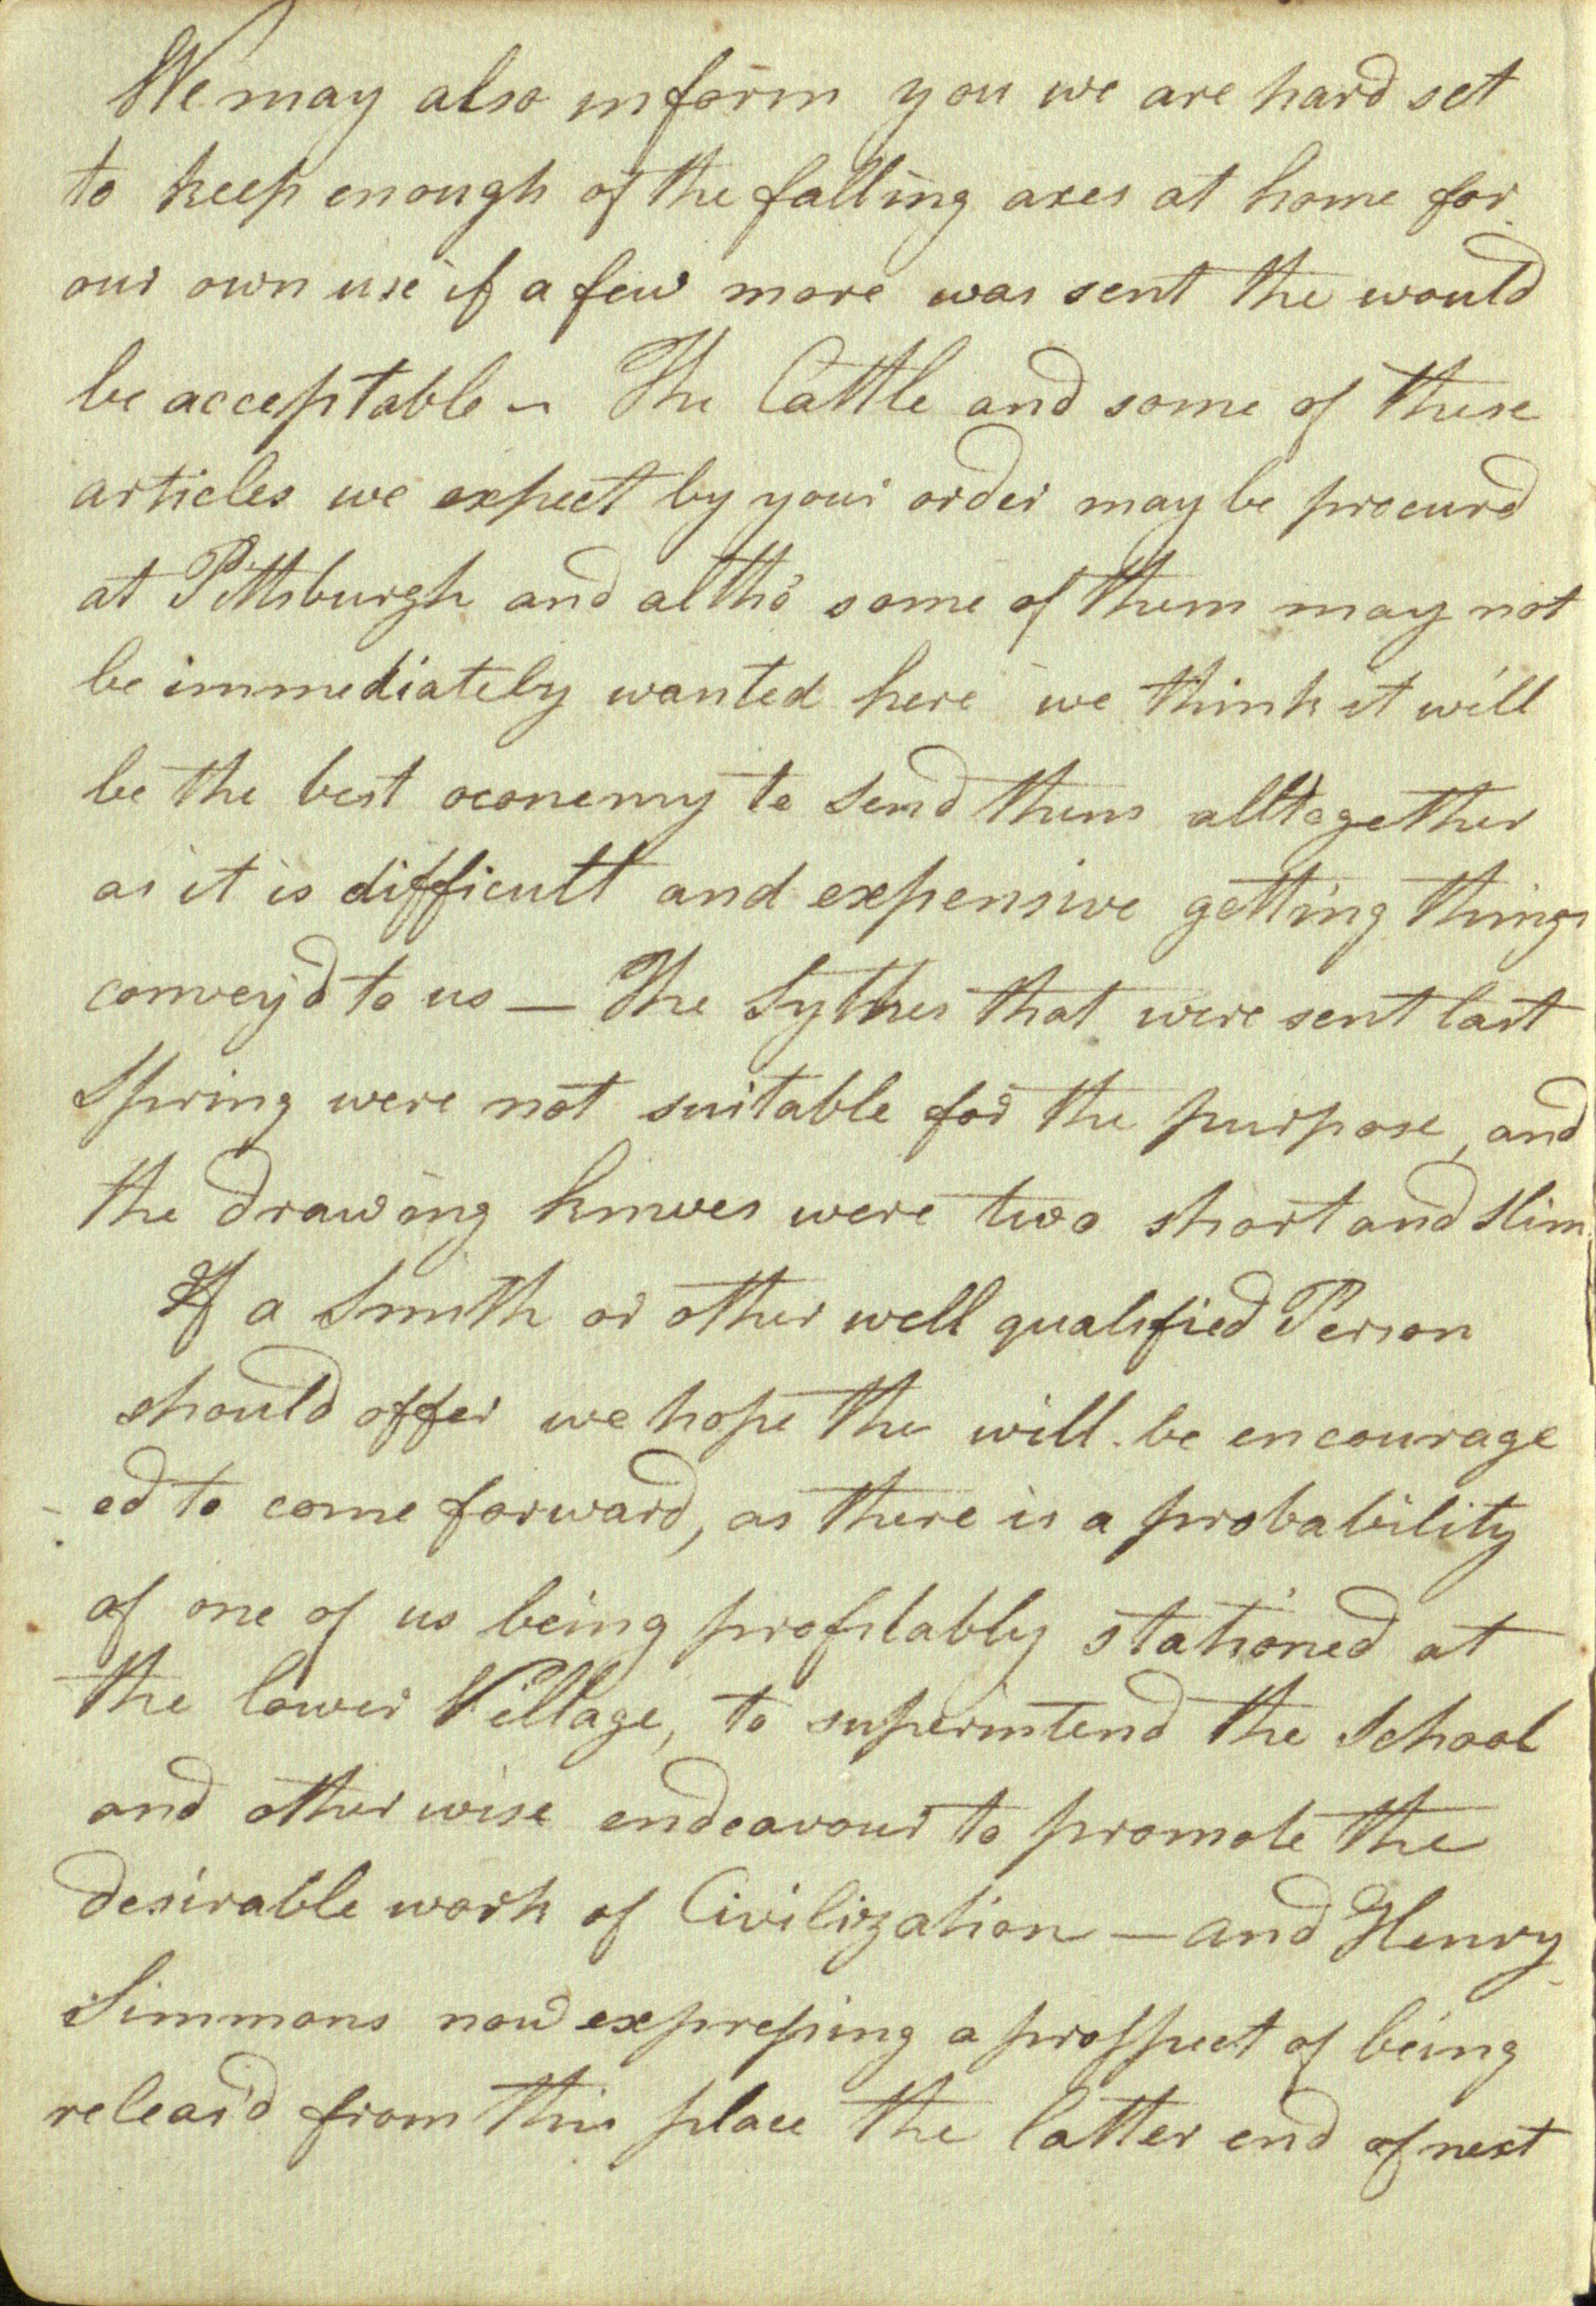 We may also inform you we are hard set
to keep enough of the falling axes at home for
our own use if a few more was sent the would
be acceptable - The Cattle and some of these
articles we expect by your order may be procurd
at Pittsburgh and altho' some of them may not
be immediately wanted here we think it will
be the best oconemy to send them alltogether
as it is difficult and expensive getting things
convey'd to us — The Sythes that were sent last
Spring were not suitable for the purpose, and
the drawing knives were two short and slim
If a Smith or other well qualified Person
should offer we hope the will be encourage
-ed to come forward, as there is a probability
of one of us being profitably stationed at
the lower Village, to superintend the School
and other wise endeavour to promote the
desirable work of Civilization — and Henry
Simmons now expressing a prosspect of being
releas'd from this place the latter end of next